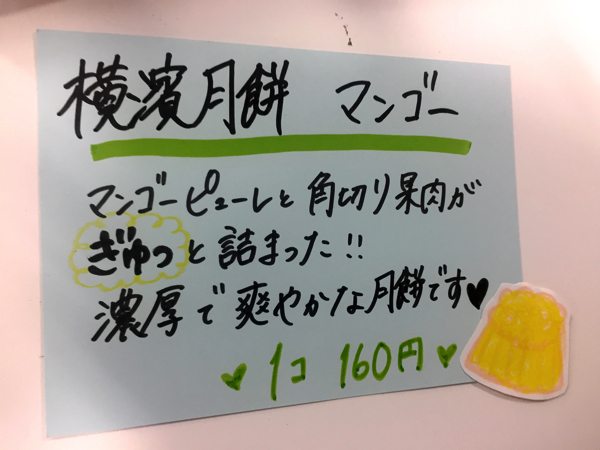 横濱月餅 マンゴー
マンゴーピューレと角切り果肉が
ぎゅっと詰まった!!
濃厚で爽やかな月餅です♥
♥1コ 160円♥